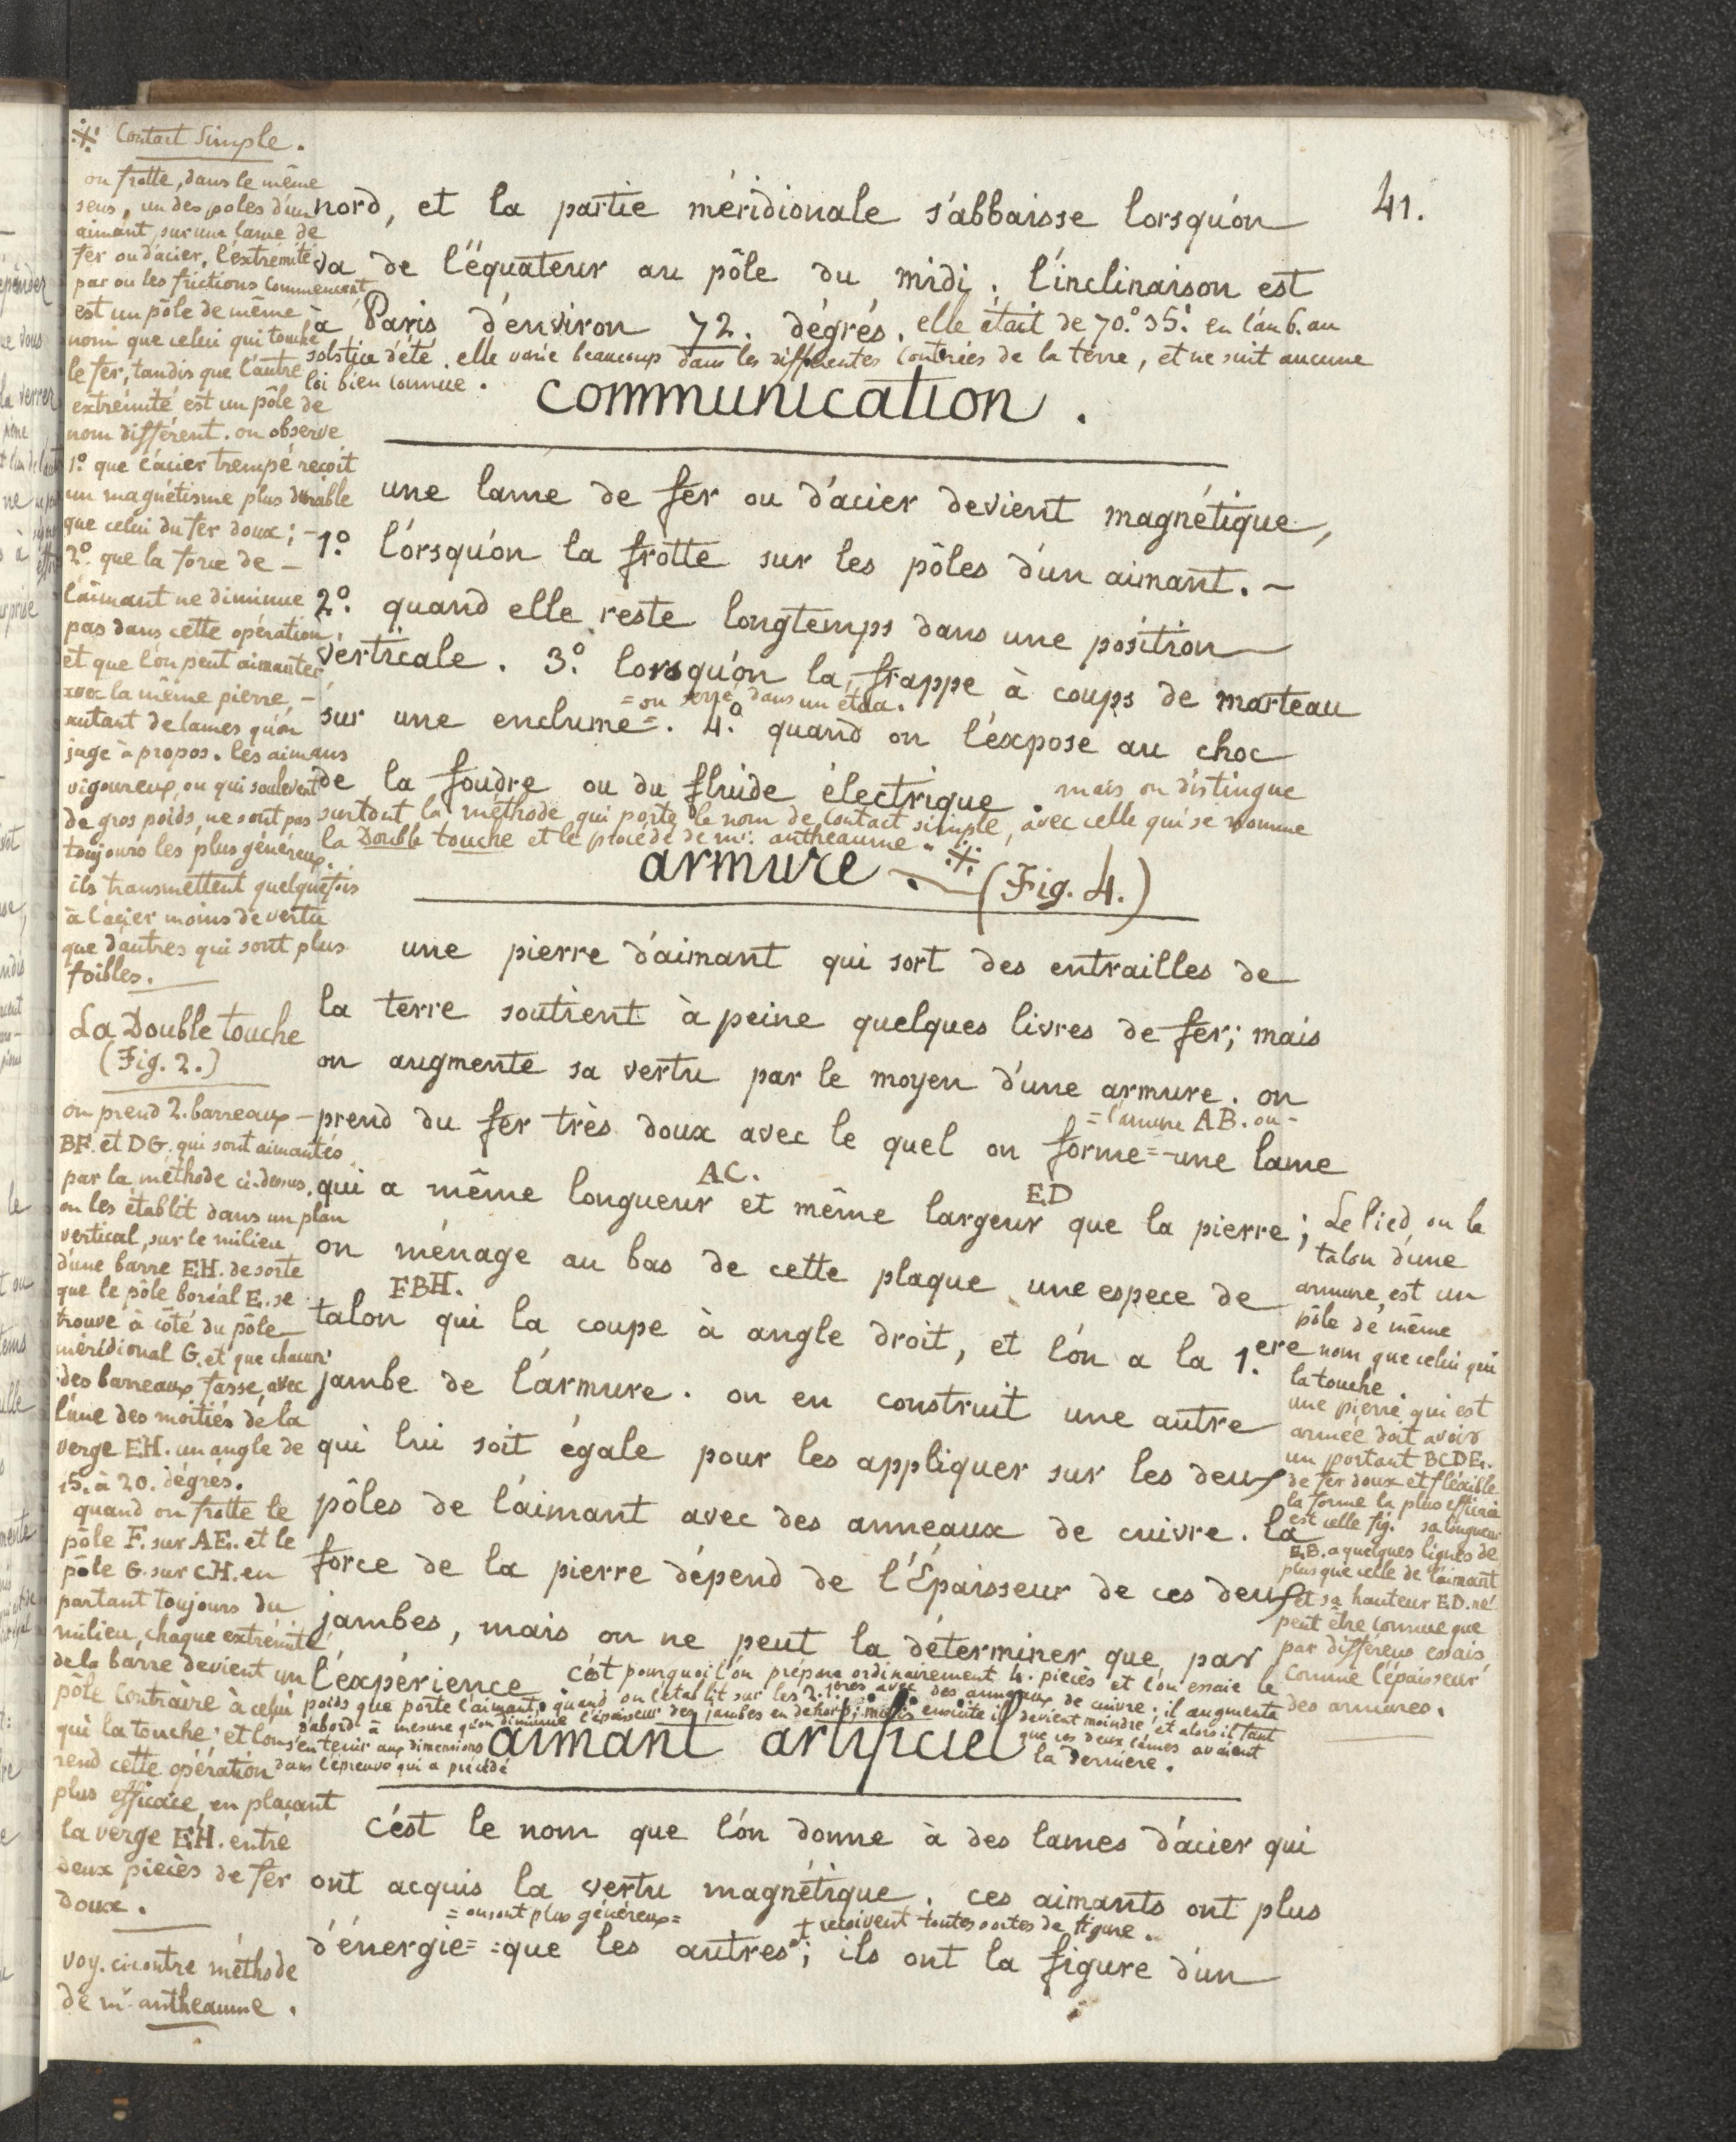 41.
nord, et la partie méridionale s'abbaisse lorsqu'on
va de l'équateur au pôle du midi. l'inclinaison est
à Paris d'environ 72. dégrés. elle était de 70.° 35.' en l'an 6. au
solstice d'été. elle varie beaucoup dans les différentes contrées de la terre, et ne suit aucune
loi bien connue.
communication.
une lame de fer ou d'acier devient magnétique,
1.° lorsqu'on la frotte sur les pôles d'un aimant. –
2.° quand elle reste longtemps dans une position
verticale. 3.° lorsqu'on la frappe à coups de marteau
= ou serré dans un étau.
sur une enclume =. 4.° quand on l'expose au choc
de la foudre ou du fluide électrique. mais on distingue
surtout la méthode qui porte le nom de contact simple, avec celle qui se nomme
la Double touche et le procédé de mr. antheaume. ※
armure. (Fig. 4.)
une pierre d'aimant qui sort des entrailles de
la terre soutient à peine quelques livres de fer; mais
on augmente sa vertu par le moyen d'une armure. on
= l'armure AB. ou -
prend du fer très doux avec le quel on forme = une lame
AC. ED
qui a même longueur et même largeur que la pierre;
on ménage au bas de cette plaque une espece de
FBH.
talon qui la coupe à angle droit, et l'on a la 1.ere
jambe de l'armure. on en construit une autre
qui lui soit égale pour les appliquer sur les deux
pôles de l'aimant avec des anneaux de cuivre. la
force de la pierre dépend de l'Épaisseur de ces deux
jambes, mais on ne peut la déterminer que par
l'expérience c'est pourquoi l'on prépare ordinairement 4. pieces et l'on essaie le
poids que porte l'aimant, quand on l'établit sur les 2. 1.eres avec des anneaux de cuivre; il augmente
d'abord à mesure qu'on diminue l'épaisseur des jambes en dehors; mais ensuite il devient moindre, et alors il faut
s'en tenir aux dimensions que ces deux lames avaient
dans l'épreuve qui a précédé la derniere.
aimant artificiel
c'est le nom que l'on donne à des lames d'acier qui
ont acquis la vertu magnétique. ces aimants ont plus
= ou sont plus généreux = + reçoivent toutes sortes de figure.
d'énergie = = que les autres +; ils ont la figure d'un
※ Contact Simple.
on frotte, dans le même
sens, un des poles d'un
aimant, sur une lame de
fer ou d'acier, l'extrémité
par ou les frictions commencent
est un pôle de même
nom que celui qui touche
le fer, tandis que l'autre
extrémité est un pôle de
nom différent. on observe
1.° que l'acier trempé reçoit
un magnétisme plus durable
que celui du fer doux; –
2.° que la force de –
l'aimant ne diminue
pas dans cette opération,
et que l'on peut aimanter
avec la même pierre, –
autant de lames qu'on
juge à propos. les aimans
vigoureux, ou qui soulevent
de gros poids, ne sont pas
toujours les plus généreux.
ils transmettent quelquefois
à l'acier moins de vertu
que d'autres qui sont plus
foibles.
La Double touche
(Fig. 2.)
on prend 2. barreaux –
BF. et DG. qui sont aimantés
par la méthode ci-dessus.
on les établit dans un plan
vertical, sur le milieu
d'une barre EH. de sorte
que le pôle boréal E. se
trouve à côté du pôle
méridional G. et que chacun
des barreaux fasse, avec
l'une des moitiés de la
verge EH. un angle de
15. à 20. dégrés.
quand on frotte le
pôle F. sur AE. et le
pôle G. sur CH. en
partant toujours du
milieu, chaque extrémité
de la barre devient un
pôle contraire à celui
qui la touche: et l'on
rend cette opération
plus efficace, en plaçant
la verge EH. entre
deux pieces de fer
doux.
voy. ci contre méthode
de mr antheaume.
Le Pied ou le
talon d'une
armure, est un
pôle de même
nom que celui qui
la touche.
une pierre qui est
armée doit avoir
un portant BCDE.
de fer doux et fléxible
la forme la plus efficace
est celle fig. sa longueur
E.B. a quelques lignes de
plus que celle de l'aimant
et sa hauteur E.D. ne
peut être connue que
par différens essais
comme l'épaisseur
des armures.